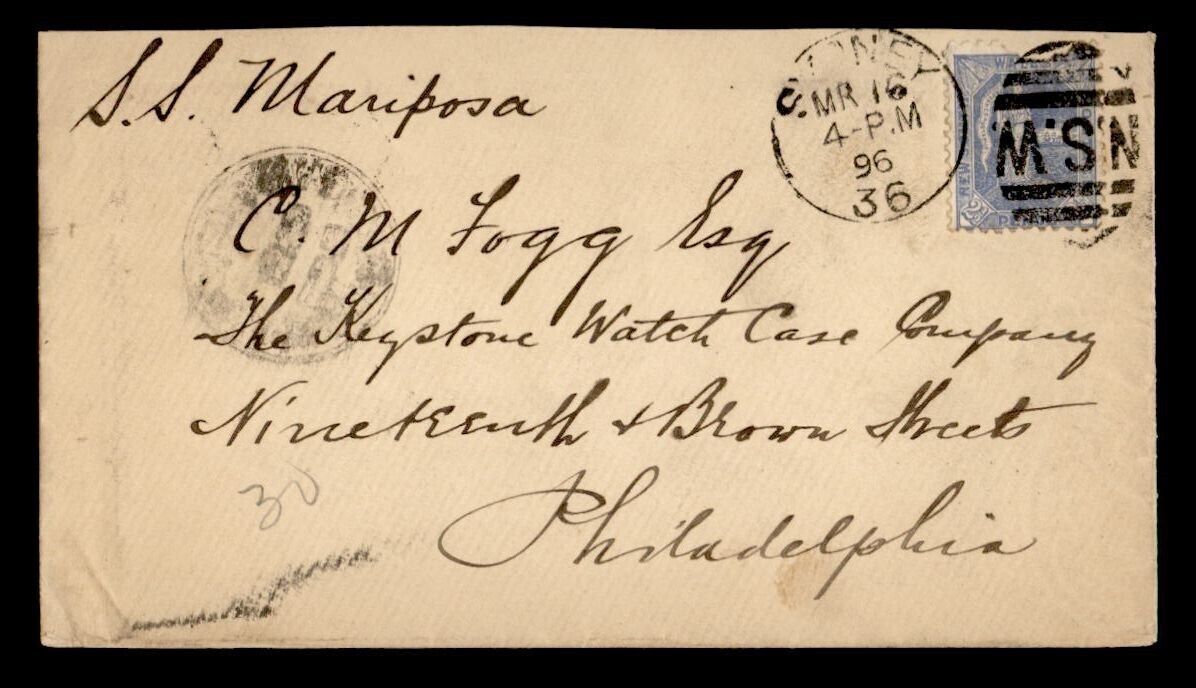 S.S. Mariposa
SYDNEY
MR 16
4-P.M
96
36
N.S.W.
NEW
2½
C. M Fogg Esq
The Keystone Watch Case Company
Nineteenth & Brown Streets
Philadelphia
30